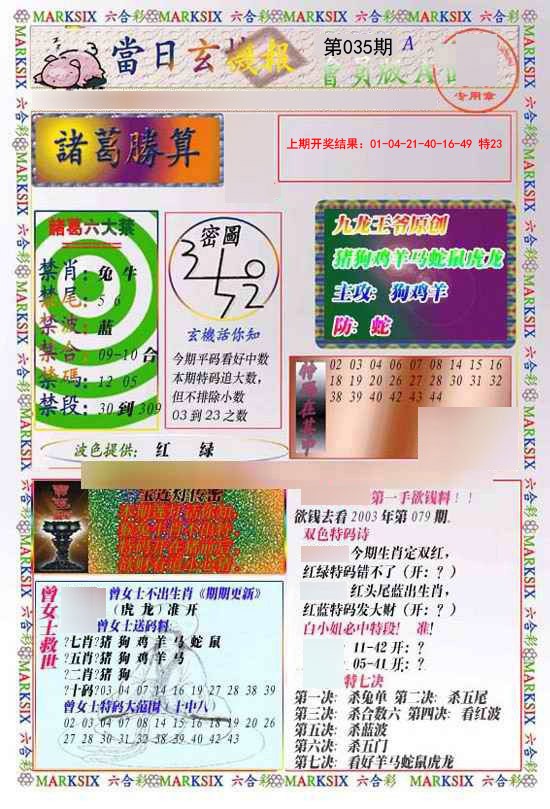 MARKSIX 六合彩 MARKSIX 六合彩 MARKSIX 六合彩 MARKSIX 六合彩
當日玄機報
第035期 A
會員版A
专用章
諸葛勝算
上期开奖结果: 01-04-21-40-16-49 特23
諸葛六大禁
禁肖: 兔 牛
禁尾: 5 6
禁波: 蓝
禁合: 09-10 合
禁碼: 12 05
禁段: 30 到 309
密圖
玄機活你知
今期平码看好中数
本期特码追大数,
但不排除小数
03 到 23 之数
九龙王爷原创
猪狗鸡羊马蛇鼠虎龙
主攻: 狗鸡羊
防: 蛇
02 03 04 06 07 08 14 15 16
18 19 20 26 27 28 30 31 32
38 39 40 42 43 44
波色提供: 红 绿
第一手欲钱料!!
欲钱去看 2003 年第 079 期.
双色特码诗
今期生肖定双红,
红绿特码错不了 (开: ?)
红头尾蓝出生肖,
红蓝特码发大财 (开: ?)
白小姐必中特段! 准!
11-42 开: ?
05-41 开: ?
特七决
第一决: 杀兔单 第二决: 杀五尾
第三决: 杀合数六 第四决: 看红波
第五决: 杀蓝波
第六决: 杀五门
第七决: 看好羊马蛇鼠虎龙
曾女士救世
曾女士不出生肖《期期更新》
(虎 龙) 准 开
曾女士送码料:
?七肖?猪 狗 鸡 羊 马 蛇 鼠
?五肖?猪 狗 鸡 羊 马
?二肖?猪 狗
?十码?03 04 07 14 16 19 27 28 38 39
曾女士特码大范围 (十中八)
02 03 04 07 08 14 15 16 18 19 20 26
27 28 30 31 32 38 39 40 42 43
MARKSIX 六合彩 MARKSIX 六合彩 MARKSIX 六合彩 MARKSIX 六合彩